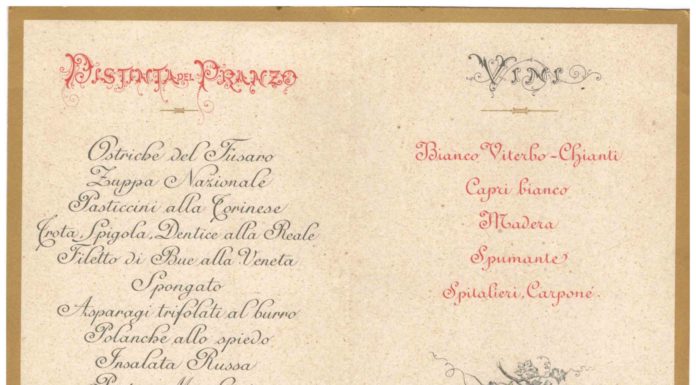 Distinta del Pranzo
Ostriche del Fusaro
Zuppa Nazionale
Pasticcini alla Torinese
Trota, Spigola, Dentice alla Reale
Filetto di Bue alla Veneta
Spongato
Asparagi trifolati al burro
Polanche allo spiedo
Insalata Russa
Vini
Bianco Viterbo-Chianti
Capri bianco
Madera
Spumante
Spitalieri, Carponé.